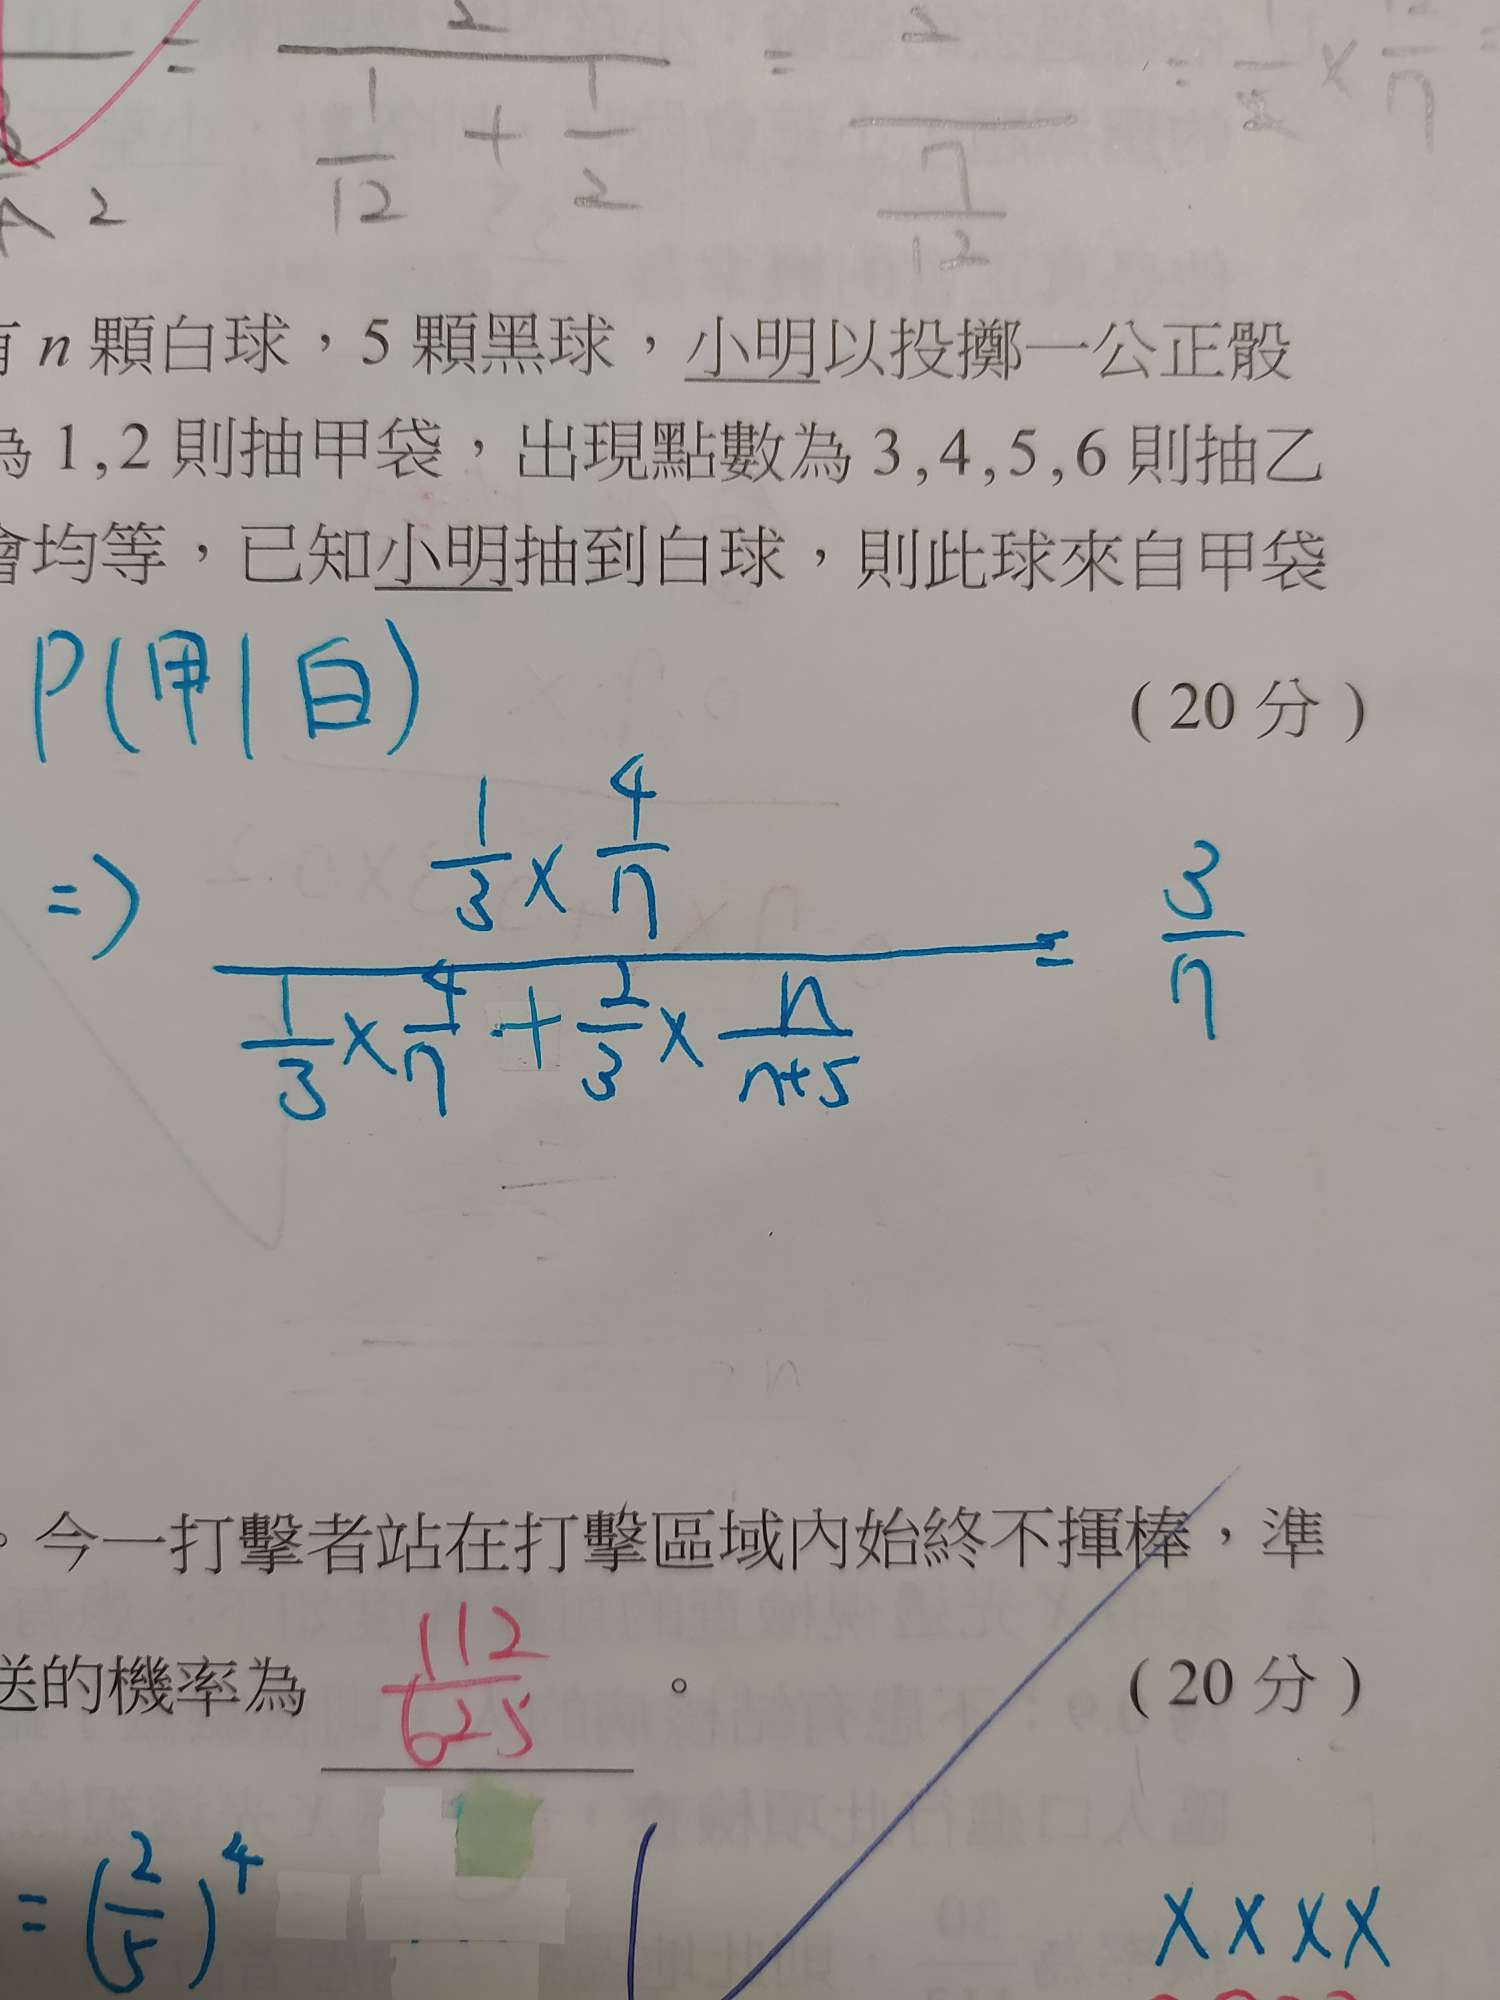 = 2/(1/12 + 1/2) = 2/(7/12) = × 12/7 =
2
n 顆白球，5 顆黑球，小明以投擲一公正骰
為 1,2 則抽甲袋，出現點數為 3,4,5,6 則抽乙
會均等，已知小明抽到白球，則此球來自甲袋
P(甲|白)
(20 分)
=> (1/3 × 4/7)/(1/3 × 4/7 + 2/3 × n/(n+5)) = 3/7
。今一打擊者站在打擊區域內始終不揮棒，準
送的機率為 112/625 。 (20 分)
= (2/5)^4
X X X X